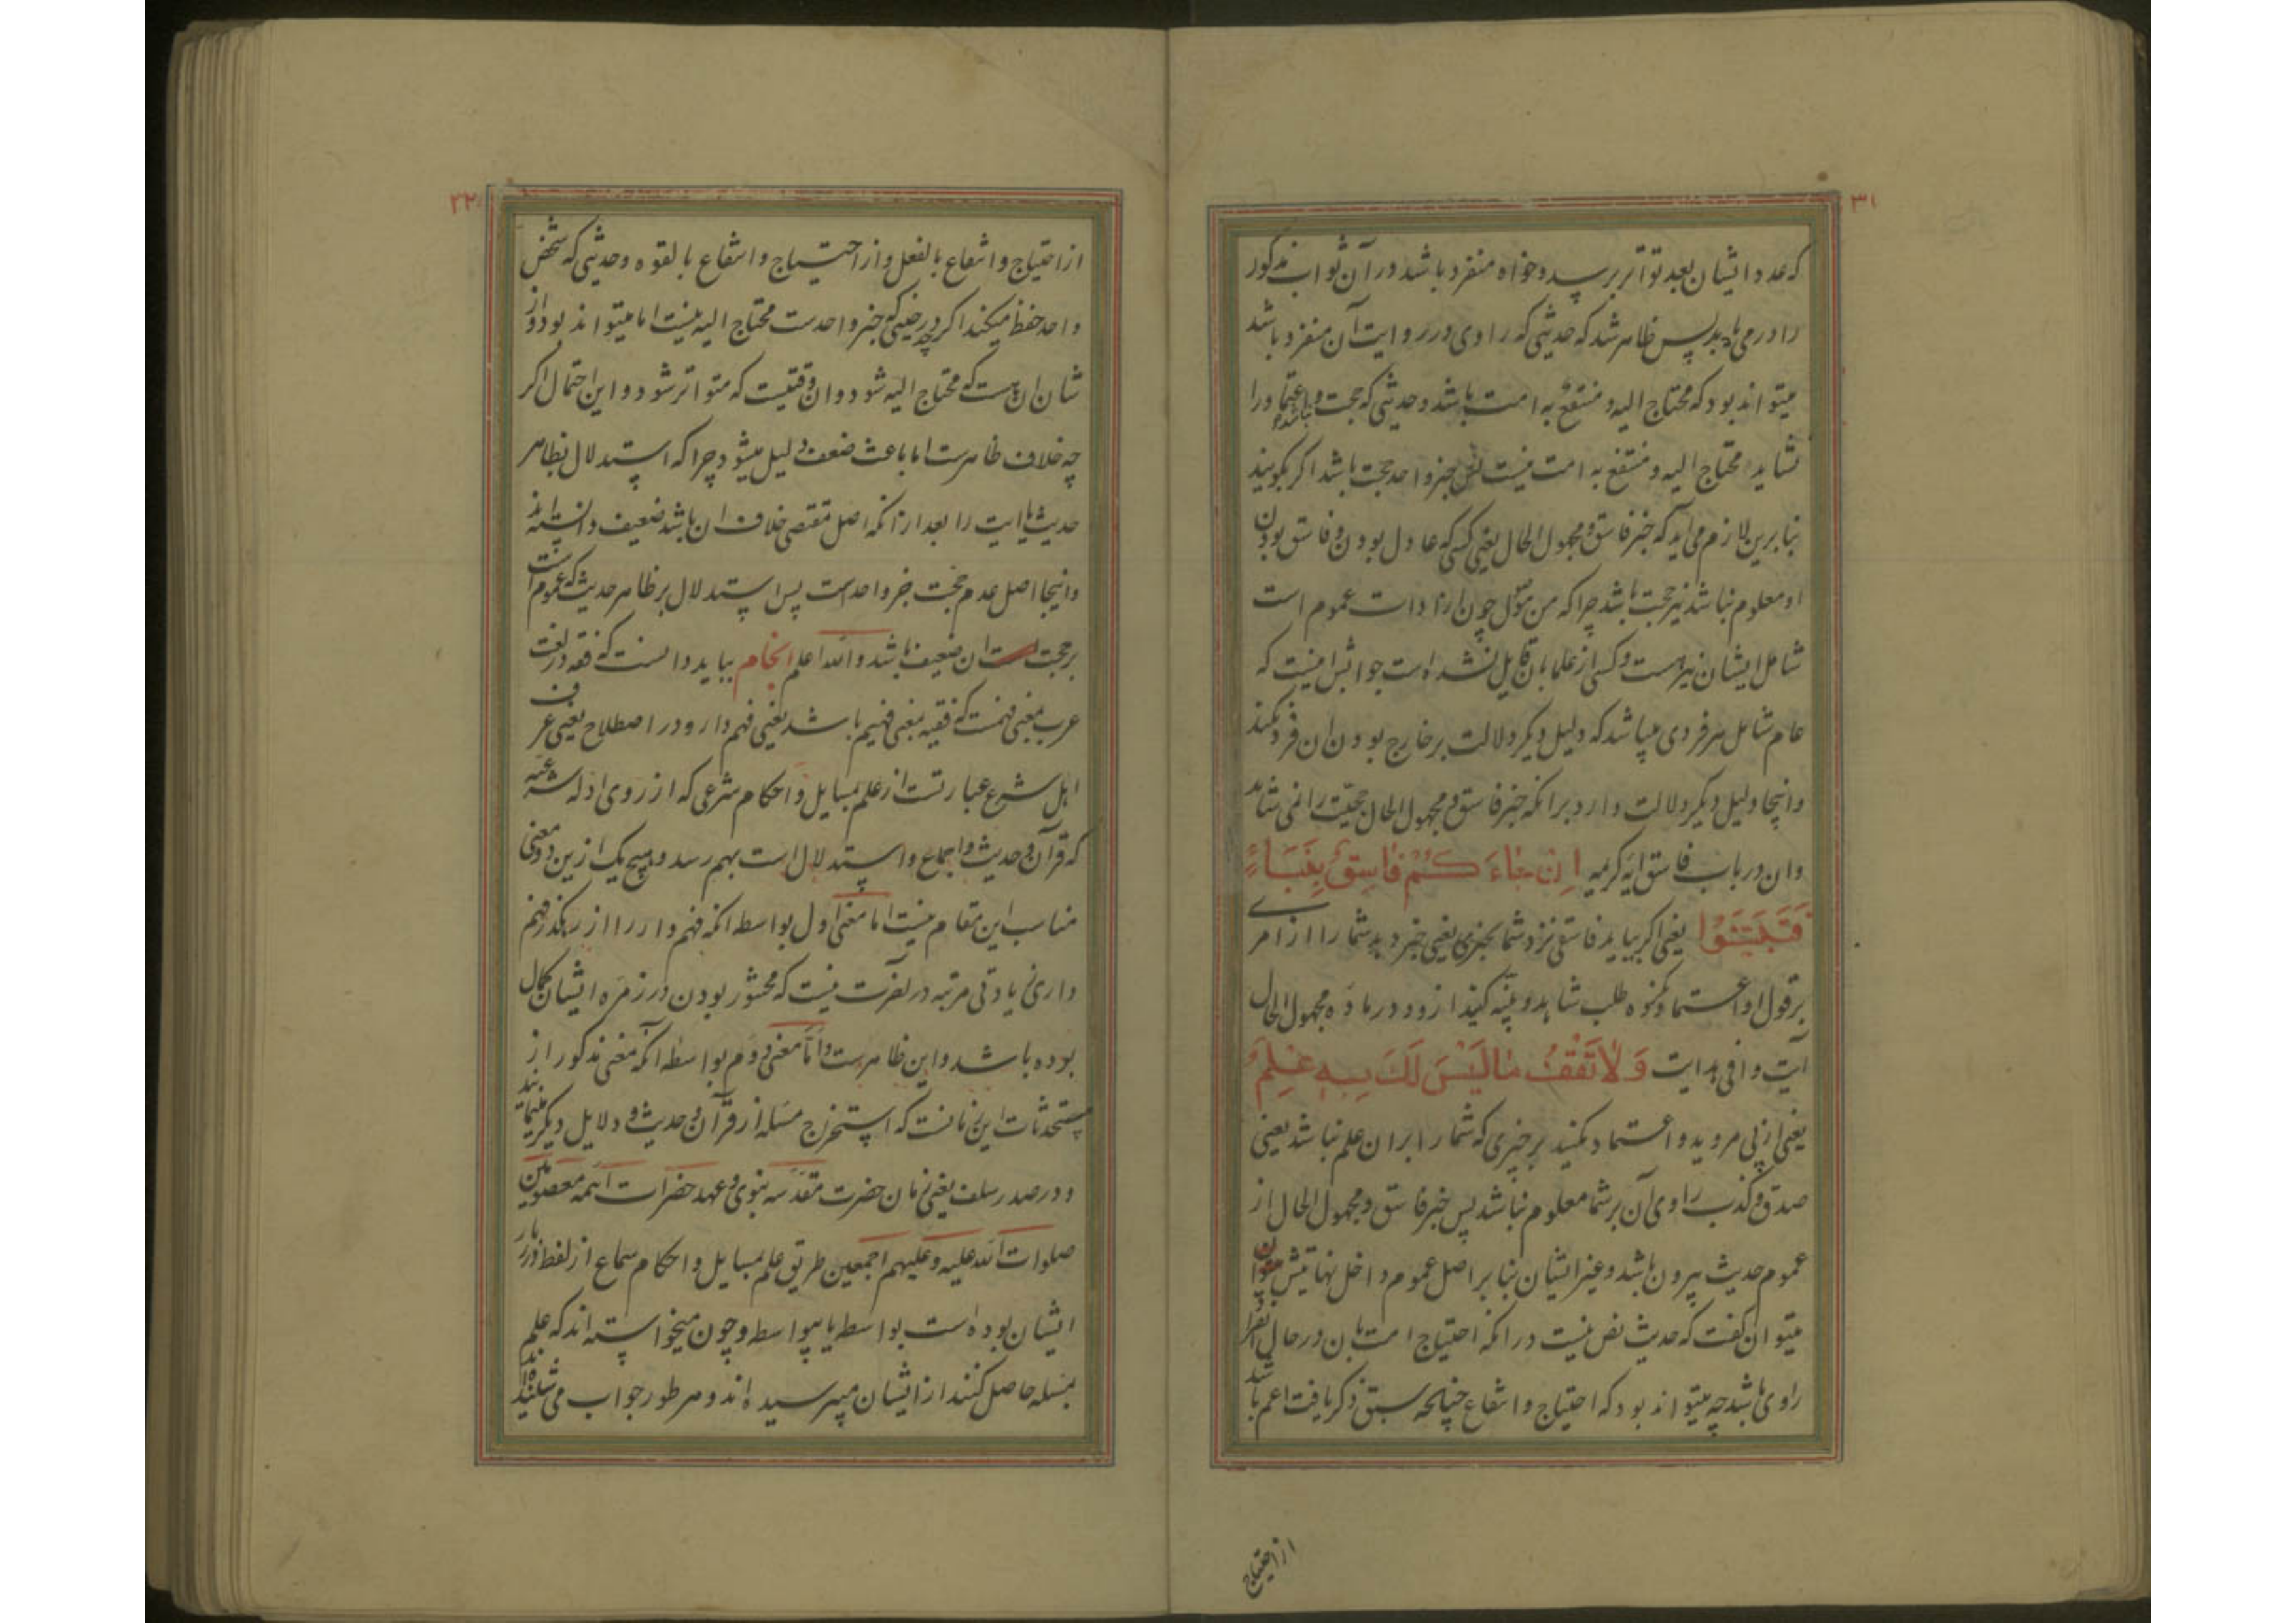 ۳۱
که عدد ایشان بعد تواتر برسد و خواه منفرد باشد در آن ثواب مذکور
را در می یابد پس ظاهر شد که حدیثی که راوی در روایت آن منفرد باشد
میتواند بود که محتاج الیه و منتفع به امت باشد و حدیثی که حجت و اعتماد را
نشاید محتاج الیه و منتفع به امت نیست پس خبر واحد حجت باشد اگر گویند
بنا برین لازم می آید که خبر فاسق و مجهول الحال یعنی کسی که عادل بودن و فاسق بودن
او معلوم نباشد نیز حجت باشد چرا که من موصول چون از ادات عموم است
شامل ایشان نیز هست و کسی از علما بان قایل نشده است جوابش اینست که
عام شامل هر فردی میباشد که دلیل دیگر دلالت بر خارج بودن ان فرد نکند
و اینجا دلیل دیگر دلالت دارد برانکه خبر فاسق و مجهول الحال حجیت را نمی شاید
و ان در باب فاسق آیه کریمه اِن جاءَ کُمْ فاسِقٌ بِنَبَاءٍ
فَتَبَیَّنُوا یعنی اگر بیاید فاسقی نزد شما بخبری یعنی خبر دهد شما را از امری
بر قول او اعتماد نکنید طلب شاهد و بینه کنید ازو و در ماده مجهول الحال
آیت وافی هدایت وَ لاتَقْفُ مالَیْسَ لَکَ بِهِ عِلمٌ
یعنی از پی مروید و اعتماد نکنید بر چیزی که شما را بران علم نباشد یعنی
صدق و کذب راوی آن بر شما معلوم نباشد پس خبر فاسق و مجهول الحال از
عموم حدیث بیرون باشد و غیر ایشان بنا بر اصل عموم داخل نهایتش
میتوان گفت که حدیث نص نیست در انکه احتیاج امت بان در حال انفراد
راوی باشد چه میتواند بود که احتیاج و انتفاع چنانچه سبق ذکر یافت اعم باشد
از احتیاج
۳۲
از احتیاج و انتفاع بالفعل و از احتیاج و انتفاع بالقوه و حدیثی که شخص
واحد حفظ میکند اگرچه در حینی که خبر واحدست محتاج الیه نیست اما میتواند بود و از
شان ان هست که محتاج الیه شود و ان وقتیست که متواتر شود و این احتمال اگر
چه خلاف ظاهرست اما باعث ضعف دلیل میشود چرا که استدلال بظاهر
حدیث یا ایت را بعد از انکه اصل مقتضی خلاف ان باشد ضعیف دانسته اند
و اینجا اصل عدم حجیت خبر واحدست پس استدلال بر ظاهر حدیث که عموم است
بر حجیت ان ضعیف باشد و الله اعلم انجام بباید دانست که فقه در لغت
عرب بمعنی فهمست که فقیه بمعنی فهیم باشد یعنی فهم دار و در اصطلاح یعنی عرف
اهل شرع عبارتست از علم بمسایل و احکام شرعی که از روی ادله شرعیه
که قرآن و حدیث و اجماع و استدلال است بهم رسد و هیچ یک ازین دو معنی
مناسب این مقام نیست اما معنی اول بواسطه انکه فهم دار را از رهگذر فهم
داری زیادتی مرتبه در اخرت نیست که محشور بودن در زمره ایشان کمال
بوده باشد و این ظاهرست و اما معنی دوم بواسطه آنکه معنی مذکور از
مستحدثات این زمانست که استخراج مسئله از قرآن و حدیث و دلایل دیگر مینمایند
و در صدر سلف یعنی زمان حضرت مقدسه نبوی و عهد حضرات ائمه معصومین
صلوات الله علیه و علیهم اجمعین طریق علم بمسایل و احکام سماع از لفظ درربار
ایشان بوده است بواسطه یا بیواسطه و چون میخواسته اند که علم
بمسئله حاصل کنند از ایشان میپرسیده اند و هر طور جواب می شنیده اند